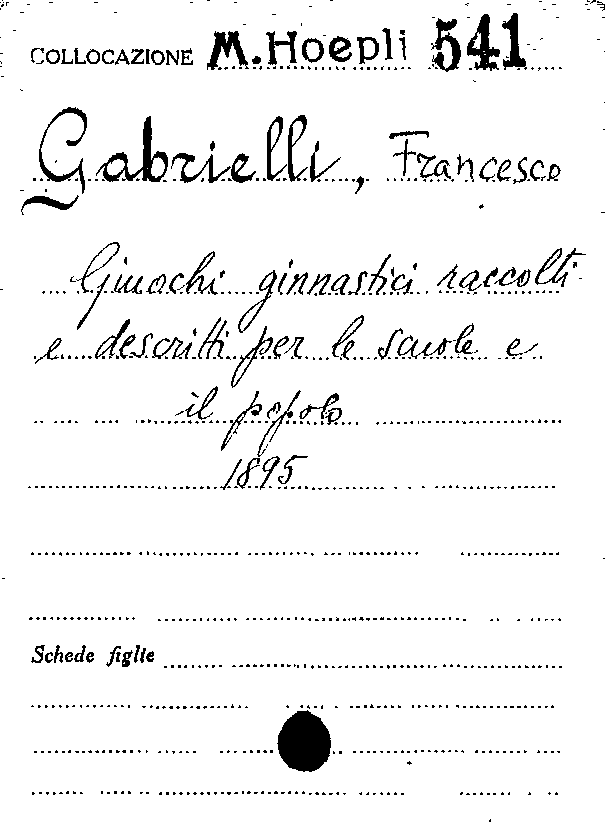 COLLOCAZIONE M. Hoepli 541
Gabrielli, Francesco
Giuochi ginnastici raccolti
e descritti per le scuole e
il popolo
1895
Schede figlie